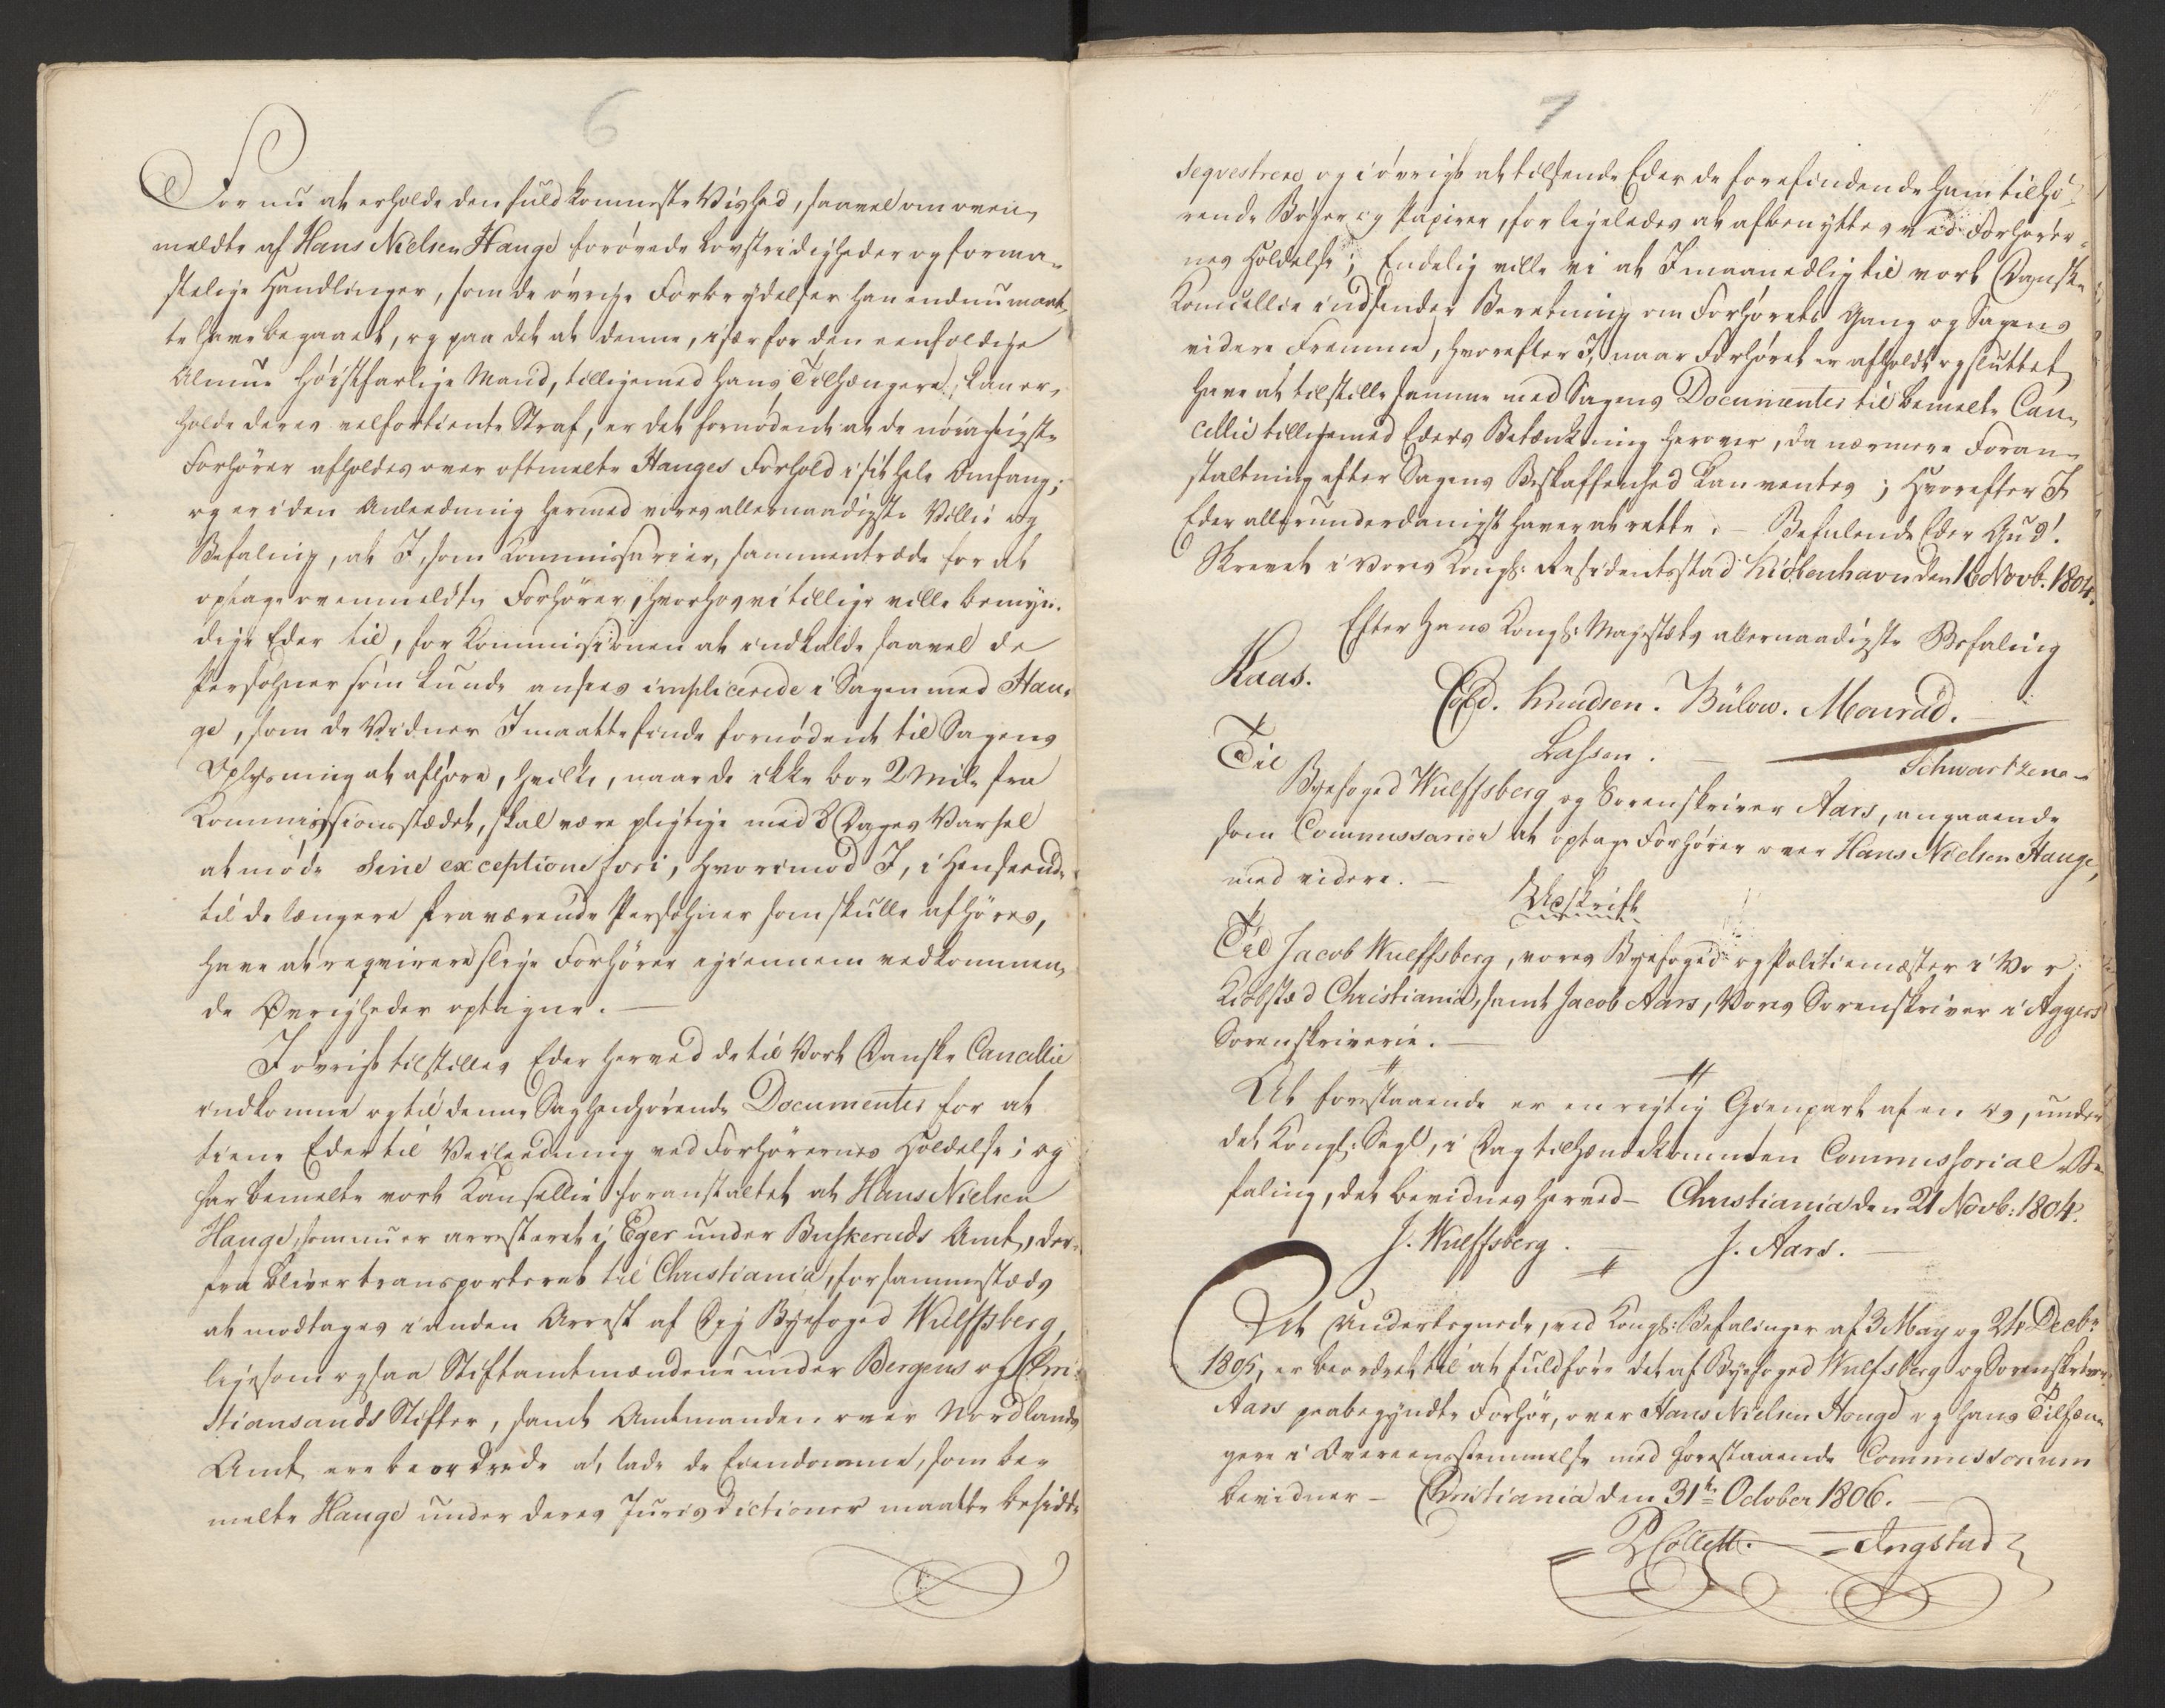 6
For nu at erholde den fuldkomneste Vished, saavel om oven,
meldte af Hans Nielsen Hauge forøvede Lovstridigheder og forma-
stelige Handlinger, som de øvrige Forbrydelser han endnu maat,
te have begaaet, og paa det at denne, især for den eenfoldige
Almue høistfarlige Mand, tilligemed hans Tilhængere, kan er,
holde deres velfortiente Straf, er det fornødent at de nøiagtigste
Forhører afholdes over oftmelte Hauges Forhold i sit hele Omfang;
og er i den Anleedning hermed vores allernaadigste Villie og
Befaling, at I, som Kommissarier, sammentræde for at
optage ovenmeldte Forhører, hvorhos vi tillige ville bemyn-
dige Eder til, for Kommissionen at indkalde saavel de
Persohner som kunde ansees implicerede i Sagen med Hau-
ge, som de Vidner I maatte finde fornødent til Sagens
Oplysning at afhøre, hvilke, naar de ikke boe 2 Mile fra
Kommissionsstædet, skal være pligtige med 8 Dages Varsel
at møde sine exceptione fori, hvorimod I, i Henseende
til de længere fraværende Persohner som skulle afhøres,
have at reqvirere slige Forhører igiennem vedkommen,
de Øvrigheder optagne. —
I øvrigt tilstilles Eder herved de til Vort Danske Cancellie
indkomne og til denne Sag henhørende Documenter for at
tiene Eder til Veileedning ved Forhørernes Holdelse; og
har bemelte vort Kansellie foranstaltet at Hans Nielsen
Hauge, som nu er arresteret i Eger under Buskeruds Amt, der-
fra bliver transporteret til Christiania, for sammestæds
at modtages i anden Arrest af Dig Byefoged Wulffsberg,
ligesom ogsaa Stiftamtmændene under Bergens og Chri-
stiansands Stifter, samt Amtmanden over Nordlands
Amt ere beordrede at lade de Eiendomme, som be-
melte Hauge under deres Jurisdictioner maatte besidde
7
seqvestrere og i øvrigt at tilsende Eder de forefindende ham tilhø-
rende Bøger og Papirer, for ligeledes at afbenyttes ved Forhører-
nes Holdelse; Endelig ville vi at I maanedlig til vort Danske
Kancellie indsender Beretning om Forhørets Gang og Sagens
videre Fremme, hvorefter I, naar Forhøret er afholdt og sluttet,
have at tilstille samme med Sagens Documenter til bemelte Can,
cellie tilligemed Eders Betænkning herover, da nærmere Foran-
staltning efter Sagens Beskaffenhed kan ventes; Hvorefter I
Eder allerunderdanigst haver at rette. — Befalende Eder Gud!
Skrevet i vores Kongl: Residentsstad Kiøbenhavn den 16 Novb. 1804.
Efter Hans Kongl: Majestæts allernaadigste Befaling
Kaas.
Cold. Knudsen. Bülow. Monrad.
Lassen. — Schwartzene-
Til
Byefoged Wulffsberg og Sorenskriver Aars, angaaende
som Commissarier at optage Forhører over Hans Nielsen Hauge,
med videre. —
Udskrift
Til Jacob Wulffsberg, vores Byefoged og Politiemester i Vor
Kiøbstæd Christiania, samt Jacob Aars, Vores Sorenskriver i Aggers
Sorenskriverie. —
At forestaaende er en rigtig Gienpart af en os, under
det Kongl: Segl, i Dag tilhændekommen Commissorial Be-
faling, det bevidnes herved — Christiania den 21 Novb: 1804.
J. Wulffsberg. — J. Aars. —
At Undertegnede, ved Kongl: Befalinger af 3 May og 24 Decbr
1805, er beordret til at fuldføre det af Byefoged Wulfsberg og Sorenskriver
Aars paabegyndte Forhør, over Hans Nielsen Hauge og hans Tilhæn-
gere i Overeensstemmelse med forestaaende Commissorium
bevidner — Christiania den 31te October 1806. —
Collett. — Ingstad